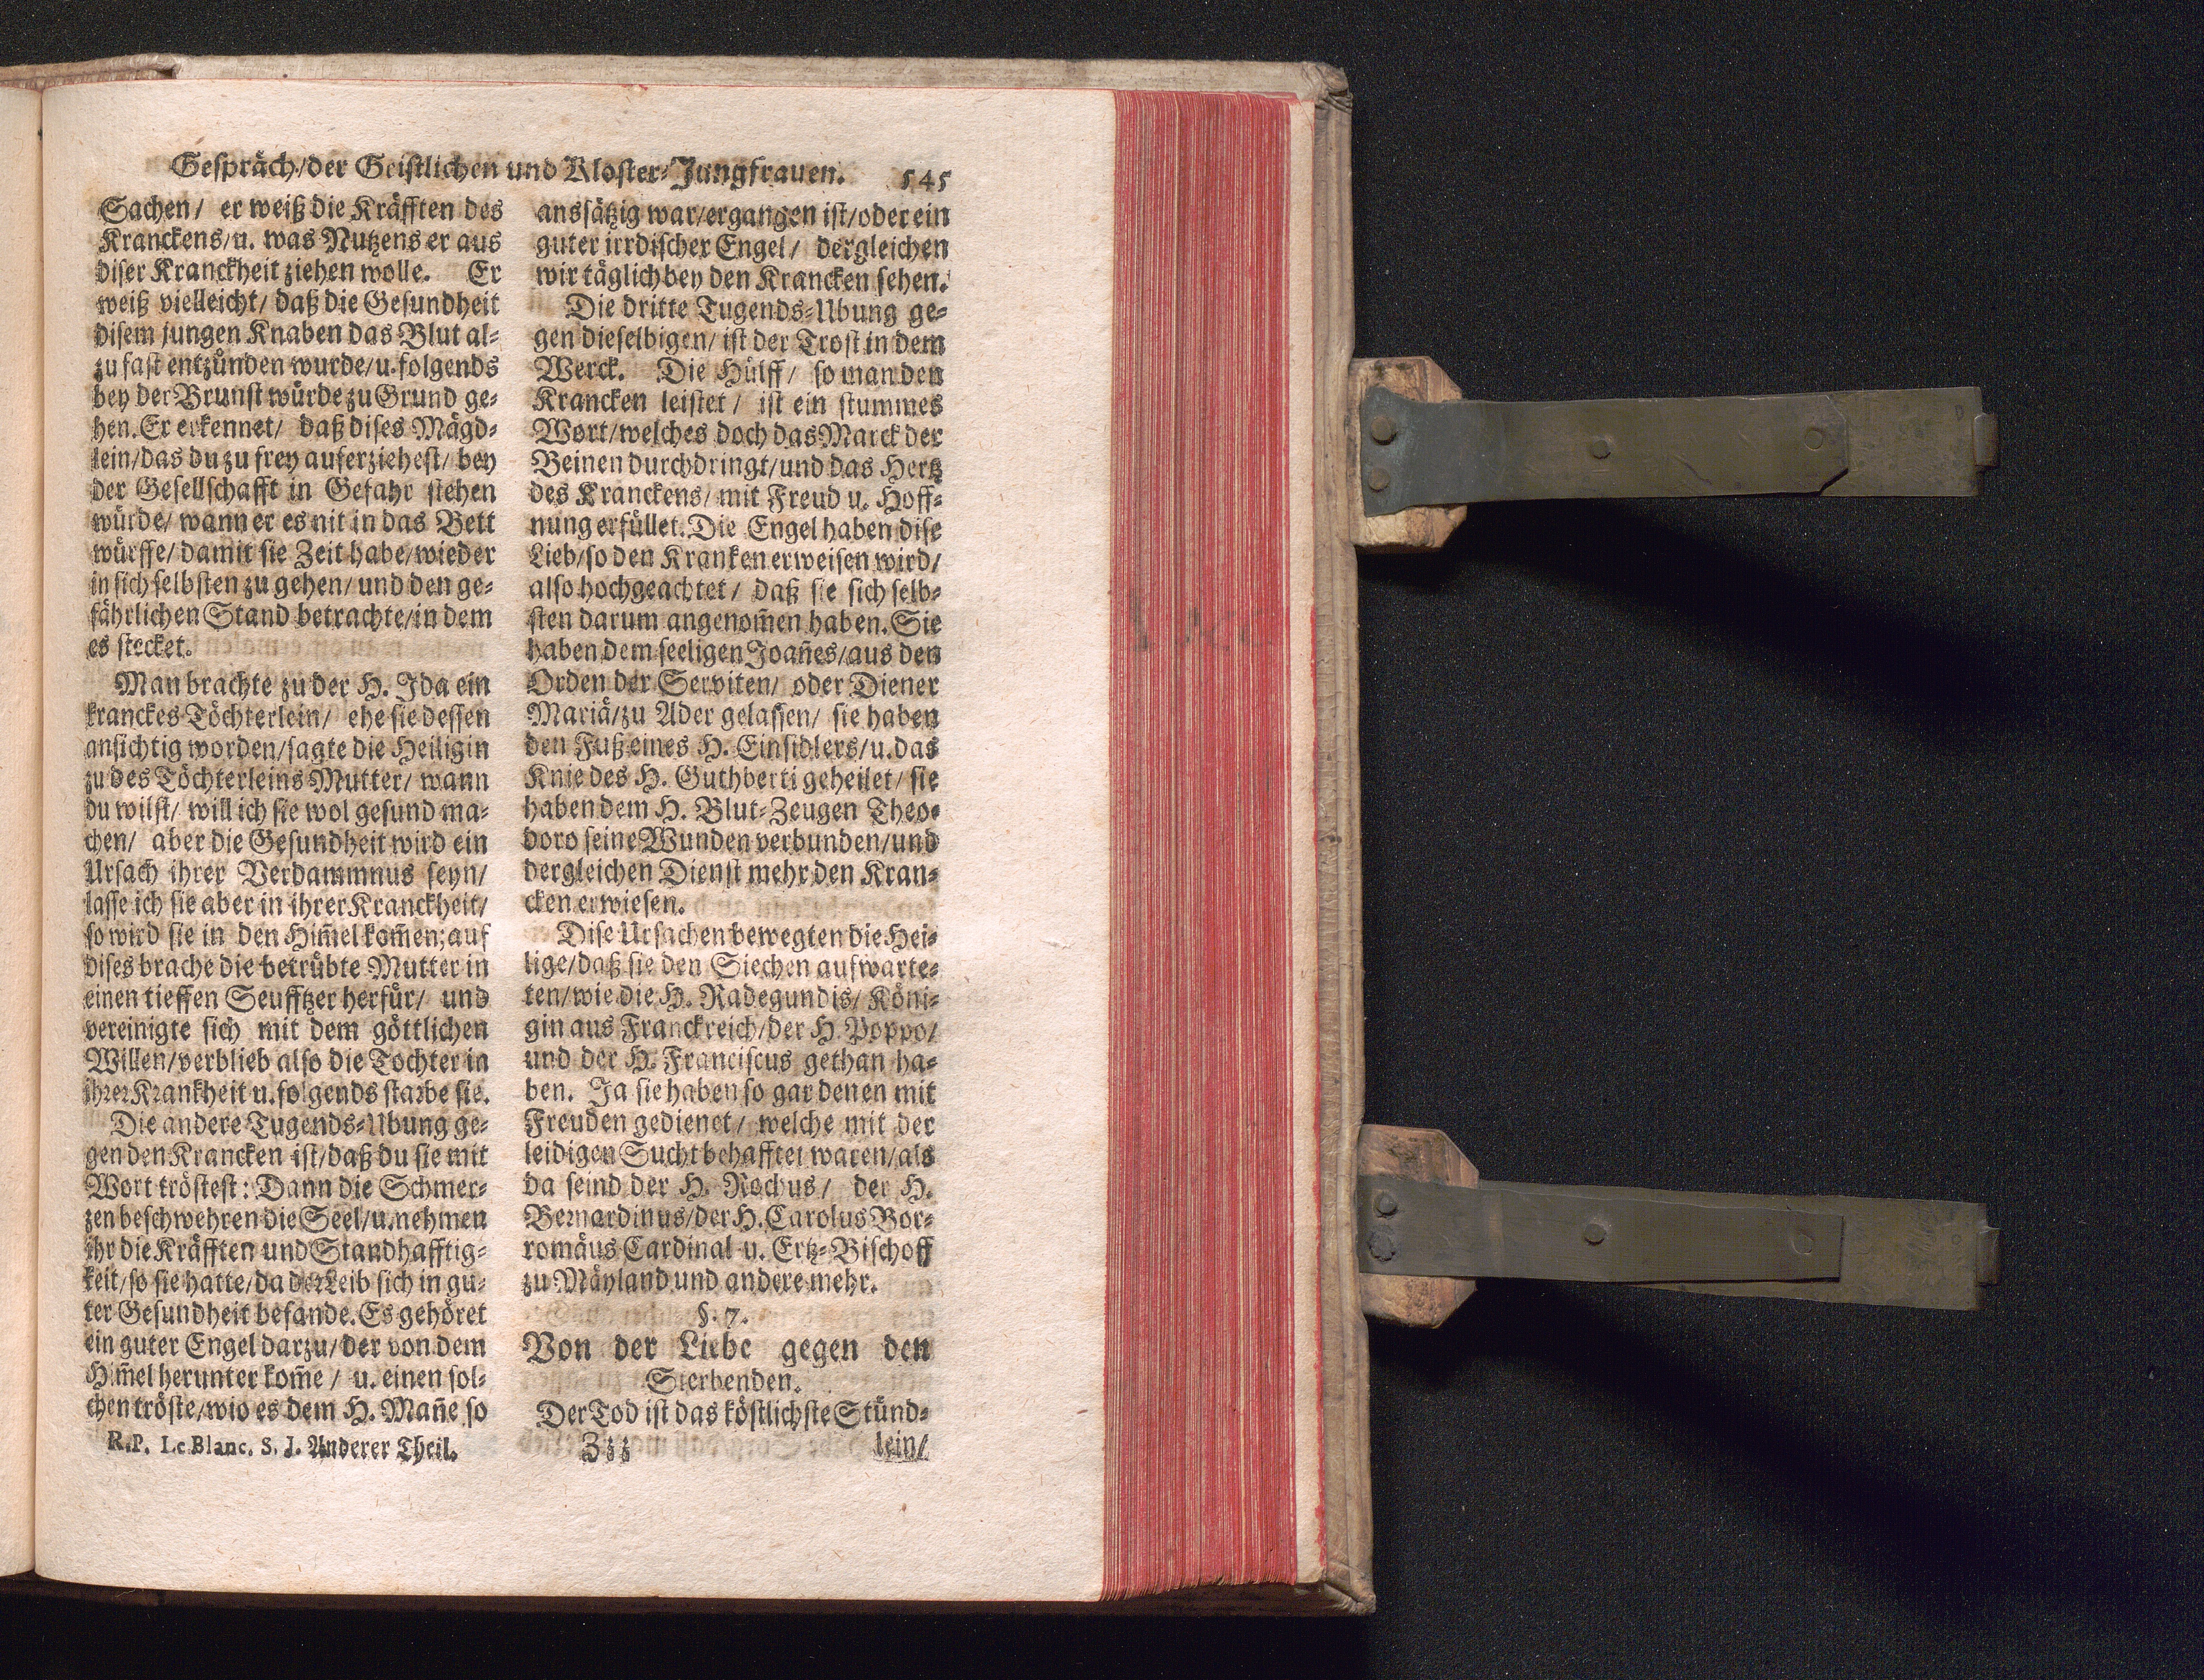 Gespräch/der Geistlichen und Kloster-Jungfrauen. 545
Sachen/ er weiß die Kräfften des
Kranckens/u. was Nutzens er aus
diser Kranckheit ziehen wolle. Er
weiß vielleicht/ daß die Gesundheit
disem jungen Knaben das Blut al-
zu fast entzünden wurde/u. folgends
bey der Brunst würde zu Grund ge-
hen. Er erkennet/ daß dises Mägd-
lein/das du zu frey auferziehest/ bey
der Gesellschafft in Gefahr stehen
würde/ wann er es nit in das Bett
würffe/ damit sie Zeit habe/wieder
in sich selbsten zu gehen/ und den ge-
fährlichen Stand betrachte/in dem
es stecket.
Man brachte zu der H. Ida ein
kranckes Töchterlein/ ehe sie dessen
ansichtig worden/sagte die Heiligin
zu des Töchterleins Mutter/ wann
du wilst/ will ich sie wol gesund ma-
chen/ aber die Gesundheit wird ein
Ursach ihrer Verdammnus seyn/
lasse ich sie aber in ihrer Kranckheit/
so wird sie in den Him̃el kom̃en; auf
dises brache die betrübte Mutter in
einen tieffen Seufftzer herfür/ und
vereinigte sich mit dem göttlichen
Willen/verblieb also die Tochter in
ihrer Krankheit u. folgends starbe sie.
Die andere Tugends-Ubung ge-
gen den Krancken ist/daß du sie mit
Wort tröstest: Dann die Schmer-
zen beschwehren die Seel/u. nehmen
ihr die Kräfften und Standhafftig-
keit/so sie hatte/da der Leib sich in gu-
ter Gesundheit befande. Es gehöret
ein guter Engel darzu/der von dem
Him̃el herunter kom̃e / u. einen sol-
chen tröste/wie es dem H. Mañe so
R.P. Le Blanc. S. J. Anderer Theil.
aussätzig war/ergangen ist/oder ein
guter irrdischer Engel/ dergleichen
wir täglich bey den Krancken sehen.
Die dritte Tugends-Ubung ge-
gen dieselbigen/ ist der Trost in dem
Werck. Die Hülff/ so man den
Krancken leistet / ist ein stummes
Wort/welches doch das Marck der
Beinen durchdringt/und das Hertz
des Kranckens/ mit Freud u. Hoff-
nung erfüllet. Die Engel haben dise
Lieb/so den Kranken erweisen wird/
also hochgeachtet / daß sie sich selb-
sten darum angenom̃en haben. Sie
haben dem seeligen Joañes/aus den
Orden der Serviten/ oder Diener
Mariä/zu Ader gelassen/ sie haben
den Fuß eines H. Einsidlers/u. das
Knie des H. Guthberti geheilet/ sie
haben dem H. Blut-Zeugen Theo-
doro seine Wunden verbunden/und
dergleichen Dienst mehr den Kran-
cken erwiesen.
Dise Ursachen bewegten die Hei-
lige/daß sie den Siechen aufwarte-
ten/wie die H. Radegundis/ Köni-
gin aus Franckreich/der H. Poppo/
und der H. Franciscus gethan ha-
ben. Ja sie haben so gar denen mit
Freuden gedienet / welche mit der
leidigen Sucht behafftet waren/als
da seind der H. Rochus / der H.
Bernardinus/der H. Carolus Bor-
romäus Cardinal u. Ertz-Bischoff
zu Mäyland und andere mehr.
§. 7.
Von der Liebe gegen den
Sterbenden.
Der Tod ist das köstlichste Stünd-
Zzz lein/